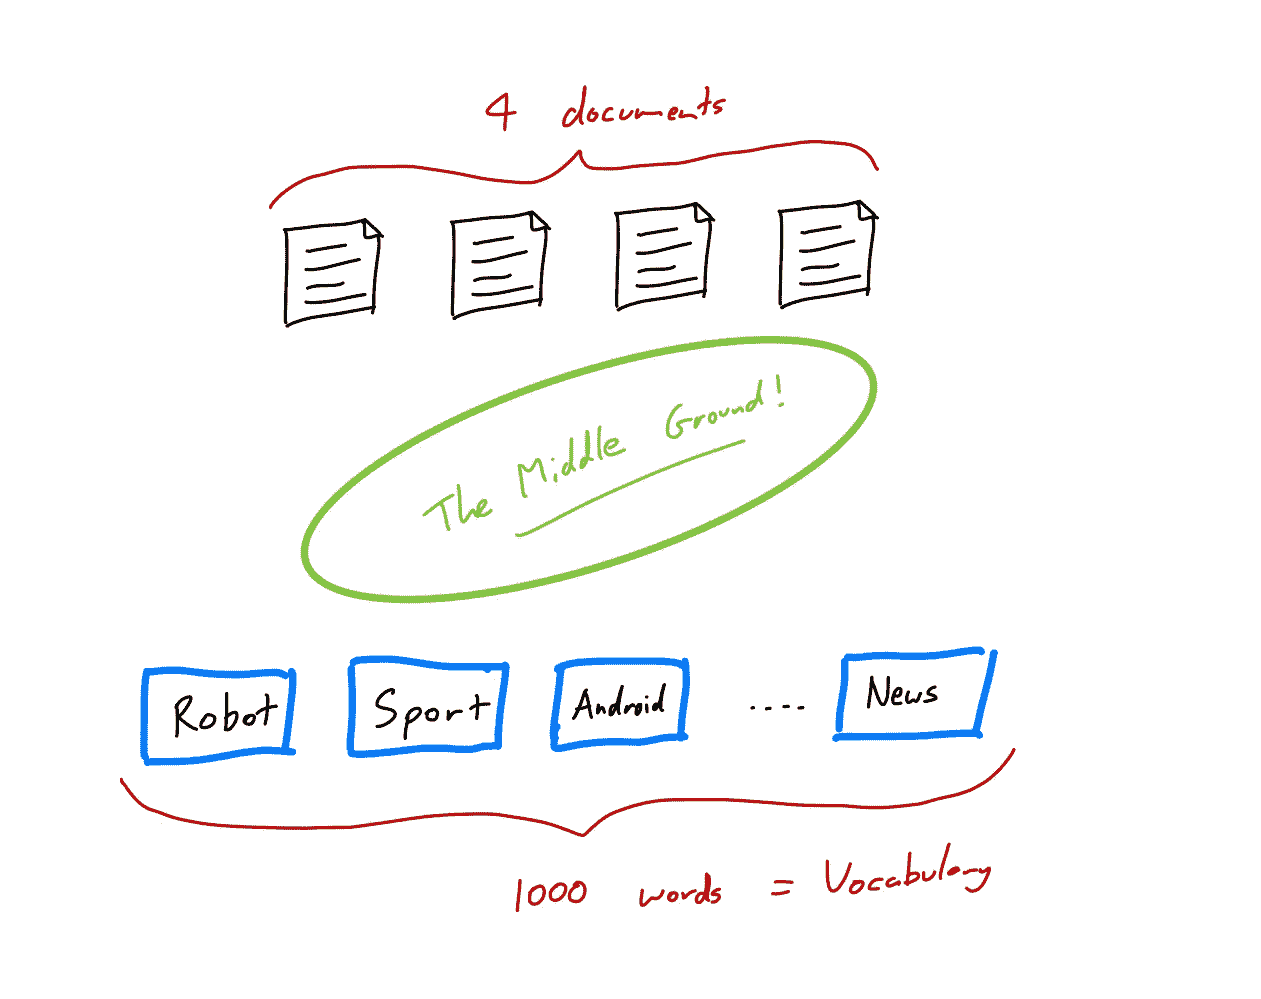 4 documents
The Middle Ground!
Robot Sport Android .... News
1000 words = Vocabulary